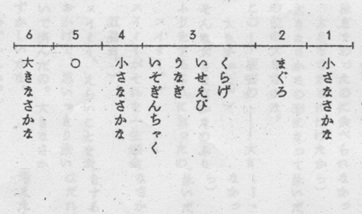 1
小さなさかな
2
まぐろ
3
くらげ
いせえび
うなぎ
いそぎんちゃく
4
小さなさかな
5
○
6
大きなさかな